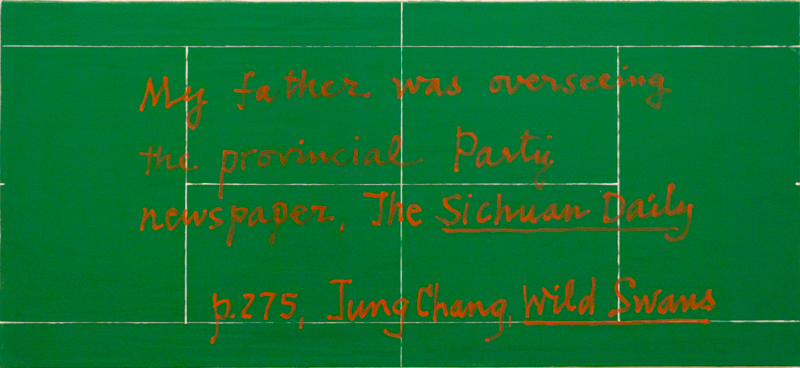 My father was overseeing
the provincial Party
newspaper, The Sichuan Daily
p.275, Jung Chang, Wild Swans